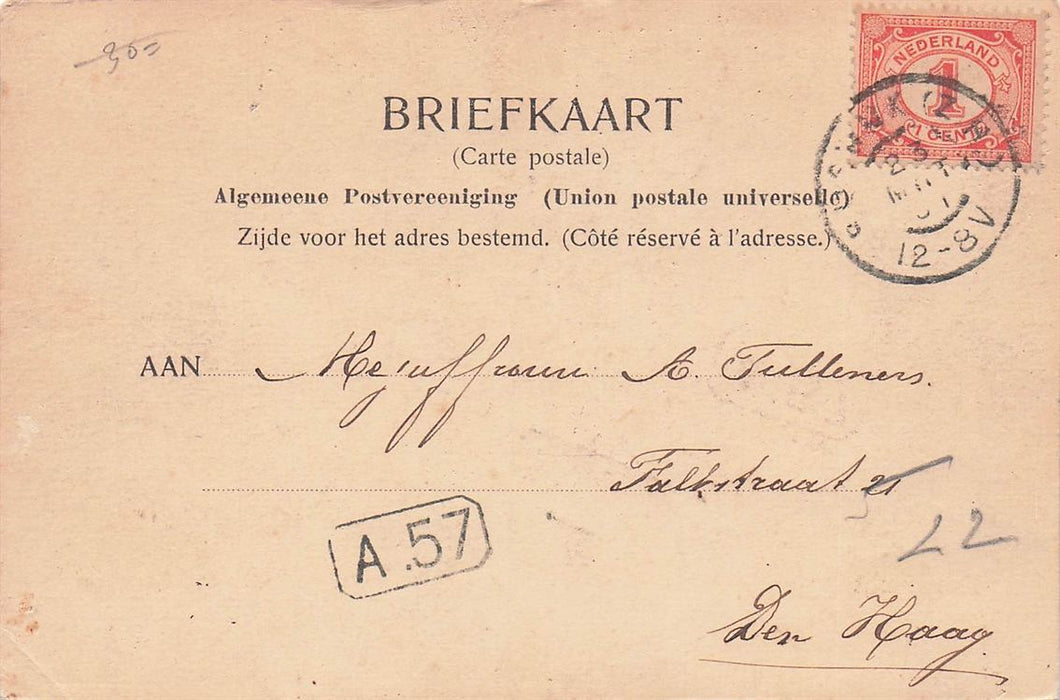 30=
NEDERLAND
1
CENT
BRIEFKAART
(Carte postale)
Algemeene Postvereeniging (Union postale universelle)
Zijde voor het adres bestemd. (Côté réservé à l'adresse.)
12-8V
AAN Mejuffrouw A. Tulleners.
Falkstraat
22
A.57
Den Haag